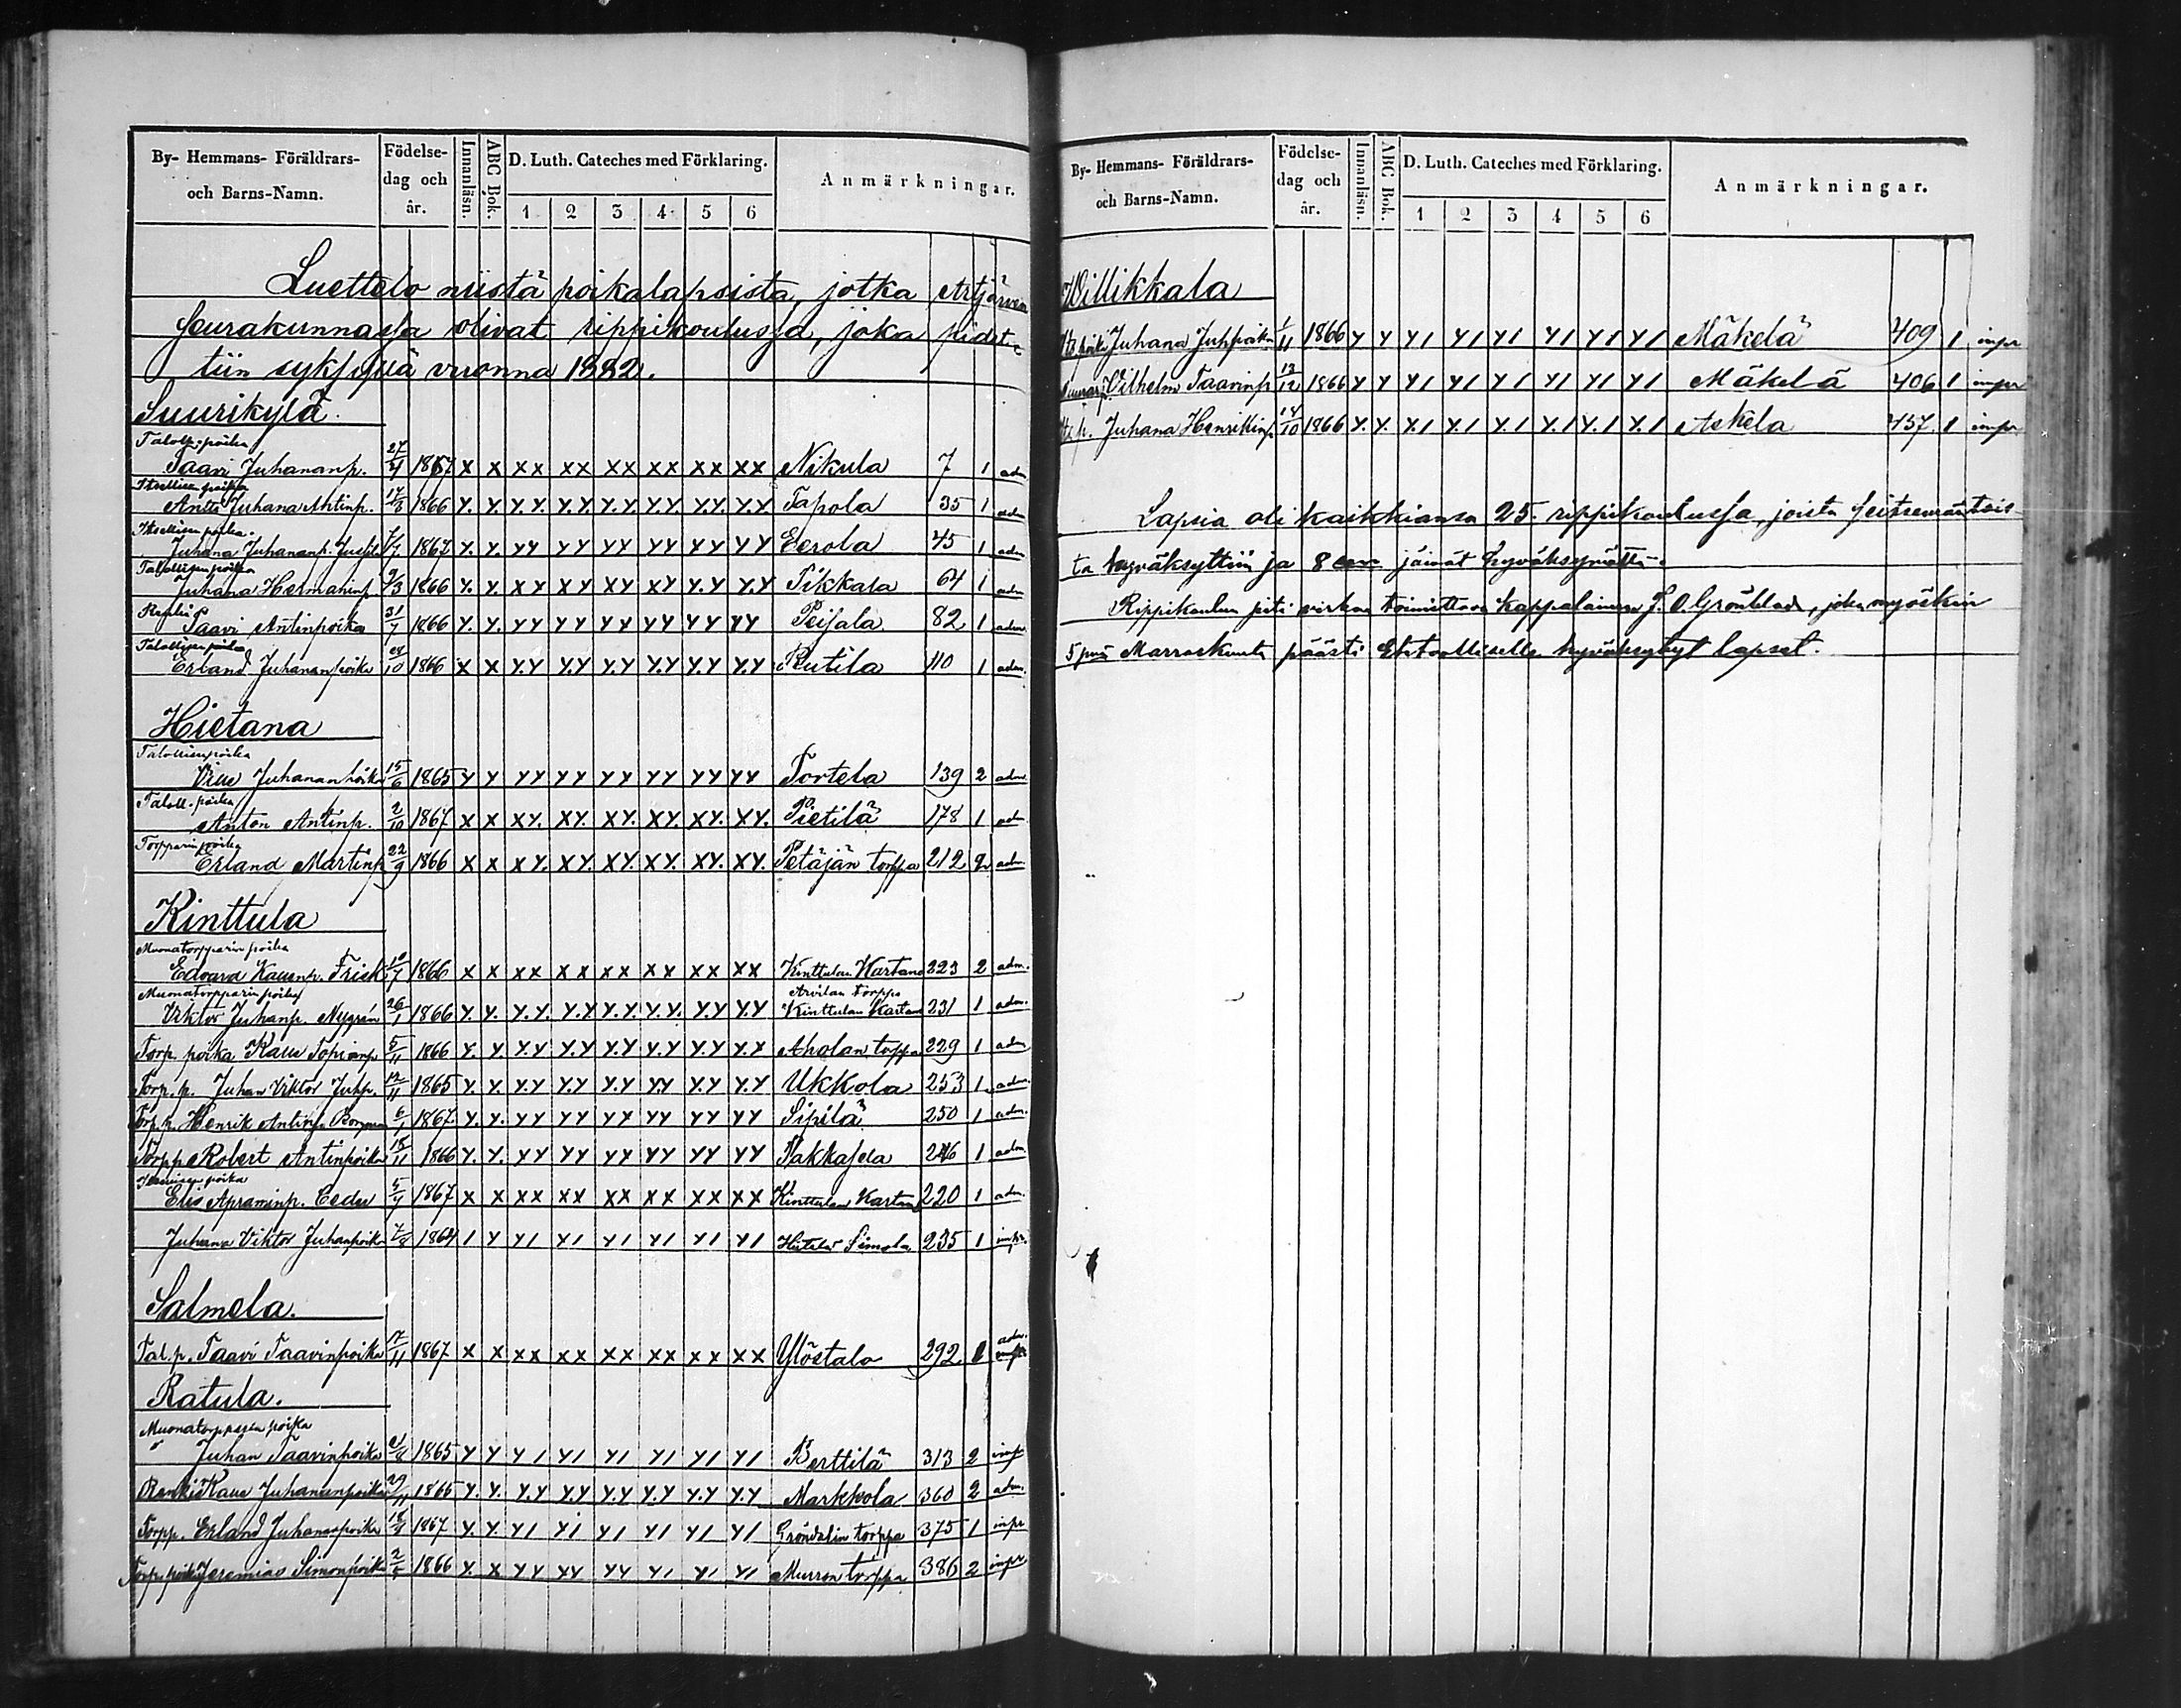 By- Hemmans- Föräldrars- och Barns-Namn. Födelse-dag och år. Innanläsn. ABC Bok. D. Luth. Cateches med Förklaring. Anmärkningar.
1 2 3 4 5 6
Luettelo niistä poikalapsista, jotka Artjärven
seurakunnassa olivat rippikoulussa, joka pidet-
tiin syksyllä vuonna 1882.
Suurikylä.
Taloll. poika
Taavi Juhananp. 27/4 1867 x x xx xx xx xx xx xx Nikula 7 1 adm
Itsellisen poika
Antti Juhana Antinp. 1866 y. y. y.y. y.y. y.y. y.y. y.y. y.y Tapola 35 1 adm
Itsellisen poika.
Juhana Juhananp. 1867 y. y. yy yy yy yy yy yy Eerola 45 1 adm
Talollisen poika
Juhana Hermaninp. 9/3 1866 y. y. xy xy xy xy y.y y.y Pikkala 64 1 adm
Taavi Antinpoika 31/7 1866 y. y. yy yy yy yy yy yy Peisala 82 1 adm.
Talollisen poika
Erland Juhananpoika 1866 x x y.y y.y y.y y.y y.y y.y Rutila 110 1 adm.
Hietana
Talollisen poika
Juhananpoika 15/6 1865 y y yy yy yy yy yy yy Tortela 139 2 adm
Taloll. poika
Anton Antinp. 2/10 1867 x x xy. xy. xy. xy. xy. xy. Pietilä 178 1 adm
Torpparin poika
Erland Martinp. 22/9 1866 x x xy. xy. xy. xy. xy. xy. Petäjän torppa 212 2 adm
Kinttula
Muonatorpparin poika
Edvard Kallenp. Frisk 1866 x x xx xx xx xx xx xx Kinttulan Kartano 223 2 adm.
Muonatorpparin poika Arvilan torppa
Viktor Juhanp. Nygrén 26/1 1866 y. y. y.y. y.y y.y. y.y. y.y y.y Kinttulan Kartano 231 1 adm.
Torp. poika Kalle Topianp. 5/11 1866 y. y y.y y.y y.y y.y y.y y.x Aholan torppa 229 1 adm
Torp. p. Juhan Viktor Juhp. 12/11 1865 y. y. y.y y.y y.y y.y y.y y.y Ukkola 253 1 adm.
Torp. p. Henrik Antinp. 6/1 1867. y. y. yy yy yy yy yy yy Sipilä 250 1 adm.
Torpp. Robert Antinpoika 18/11 1866 y. y. yy yy yy yy yy yy Pakkasela 246 1 adm.
Itsellisen poika
Elis Apraminp. Ceder 1867 x x xx xx xx xx xx xx Kinttulan Kartano 220 1 adm.
Juhana Viktor Juhanpoika 1864 1 y y1 y1 y1 y1 y1 y1 Simola 235 1 impr.
Salmela.
Tal. p. Taavi Taavinpoika 17/11 1867 x x xx xx xx xx xx xx Ylöstalo 292 adm.
Ratula.
Muonatorpparin poika
Juhan Taavinpoika 1865 y y y1 y1 y1 y1 y1 y1 Perttilä 313 2 impr
Renki Kalle Juhananpoika 29/11 1865 y. y. y.y y.y y.y y.y y.y y.y Markkola 360 2 adm.
Torpp. Erland Juhananpoika 1867 y. y. y1 y1 y1 y1 y1 y1 Gröndalin torppa 375 1 impr
Torp. poika Jeremias Simonpoika 1866 y. x yy yy yy y1 y1 y1 Murron torppa 386 2 impr
By- Hemmans- Föräldrars- och Barns-Namn. Födelse-dag och år. Innanläsn. ABC Bok. D. Luth. Cateches med Förklaring. Anmärkningar.
1 2 3 4 5 6
Willikkala
Its. poika Juhana Juhpoika 1/11 1866 y y y1 y1 y1 y1 y1 y1 Mäkelä 409 1 impr
Vilhelm Taavinp. 13/12 1866 y. y y1 y1 y1 y1 y1 y1 Mäkelä 406 1 impr
Its. p. Juhana Henrikinp. 14/10 1866 y. y. y.1 y.1 y.1 y.1 y.1 y.1 Askela 457 1 impr
Lapsia oli kaikkiansa 25. rippikoulussa, joista seitsemäntois-
ta hyväksyttiin ja 8 jäivät hyväksymättä.
Rippikoulun piti virkaa toimittava kappalainen J. O. Grönblad, joka myöskin
5 p:nä Marraskuuta päästi Ehtoolliselle hyväksytyt lapset.